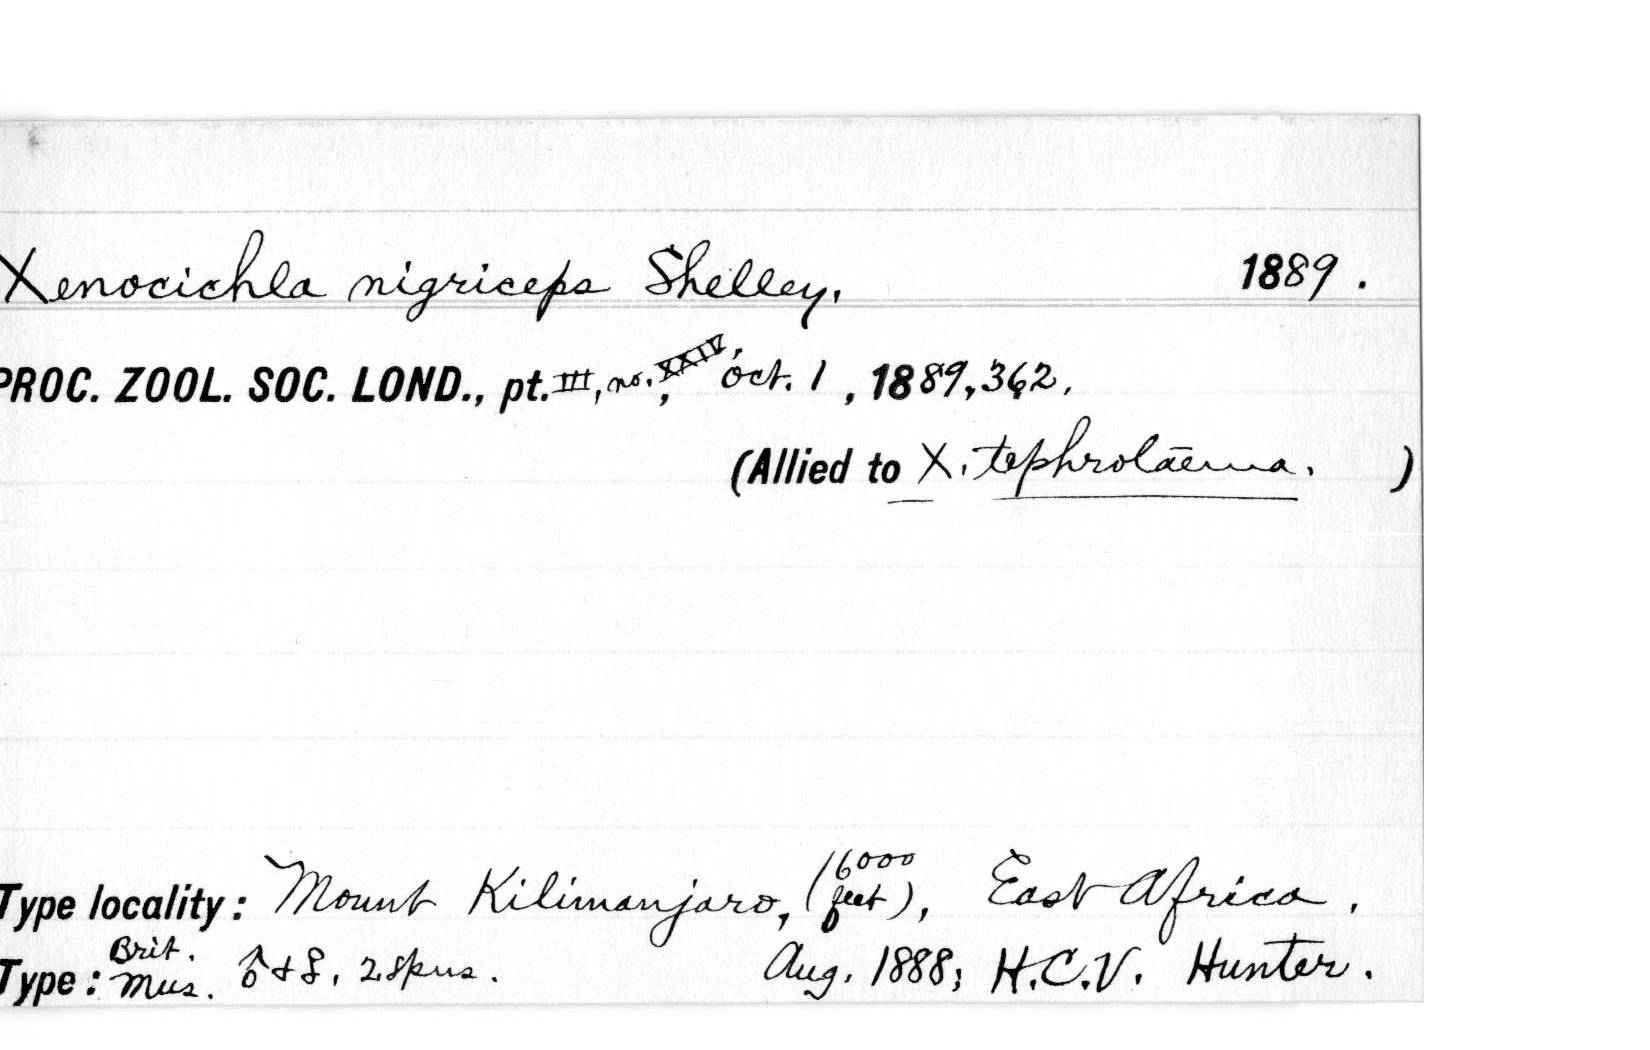 Xenocichla nigriceps Shelley. 1889.
PROC. ZOOL. SOC. LOND., pt. III, no. XXIV, Oct. 1, 1889, 362.
(Allied to X. tephrolaema.)
Type locality: Mount Kilimanjaro, (6000 feet), East Africa.
Type: Brit. Mus. ♂ & ♀, 2 spns. Aug. 1888; H.C.V. Hunter.